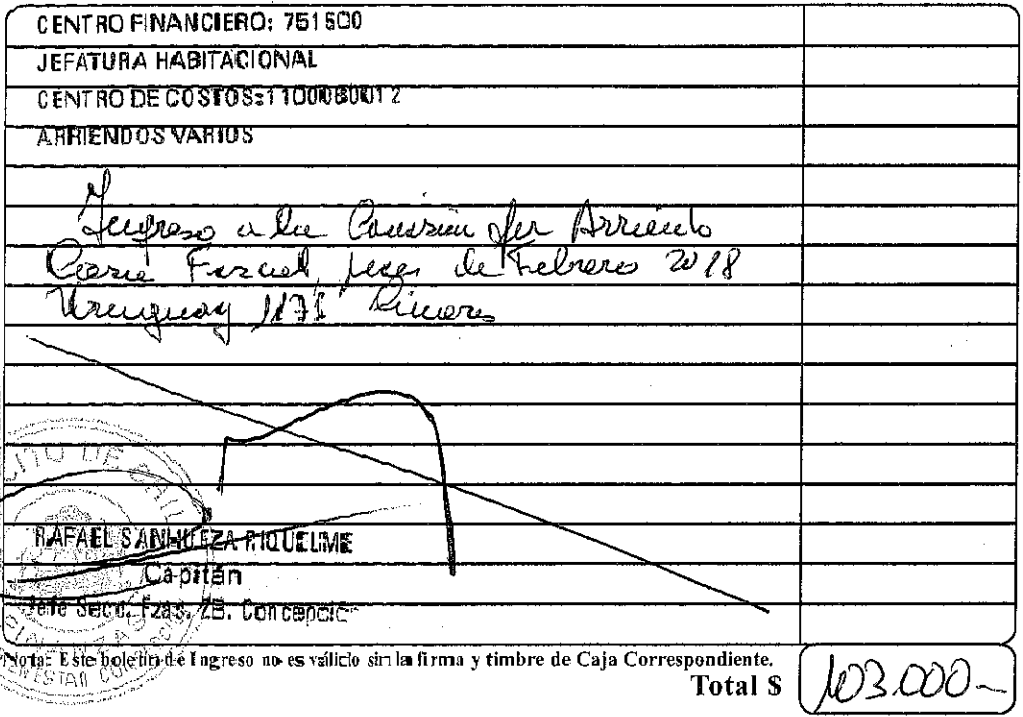 CENTRO FINANCIERO: 751500
JEFATURA HABITACIONAL
CENTRO DE COSTOS:1100080012
ARRIENDOS VARIOS
Ingreso a la Comisión por Arriendo
Casa Fiscal, mes de Febrero 2018
Uruguay 1171
RAFAEL SANHUEZA RIQUELME
Capitán
Jefe Secc. Fzas. ZB. Concepción
Nota: Este boletín de Ingreso no es válido sin la firma y timbre de Caja Correspondiente.
Total $ 103.000-